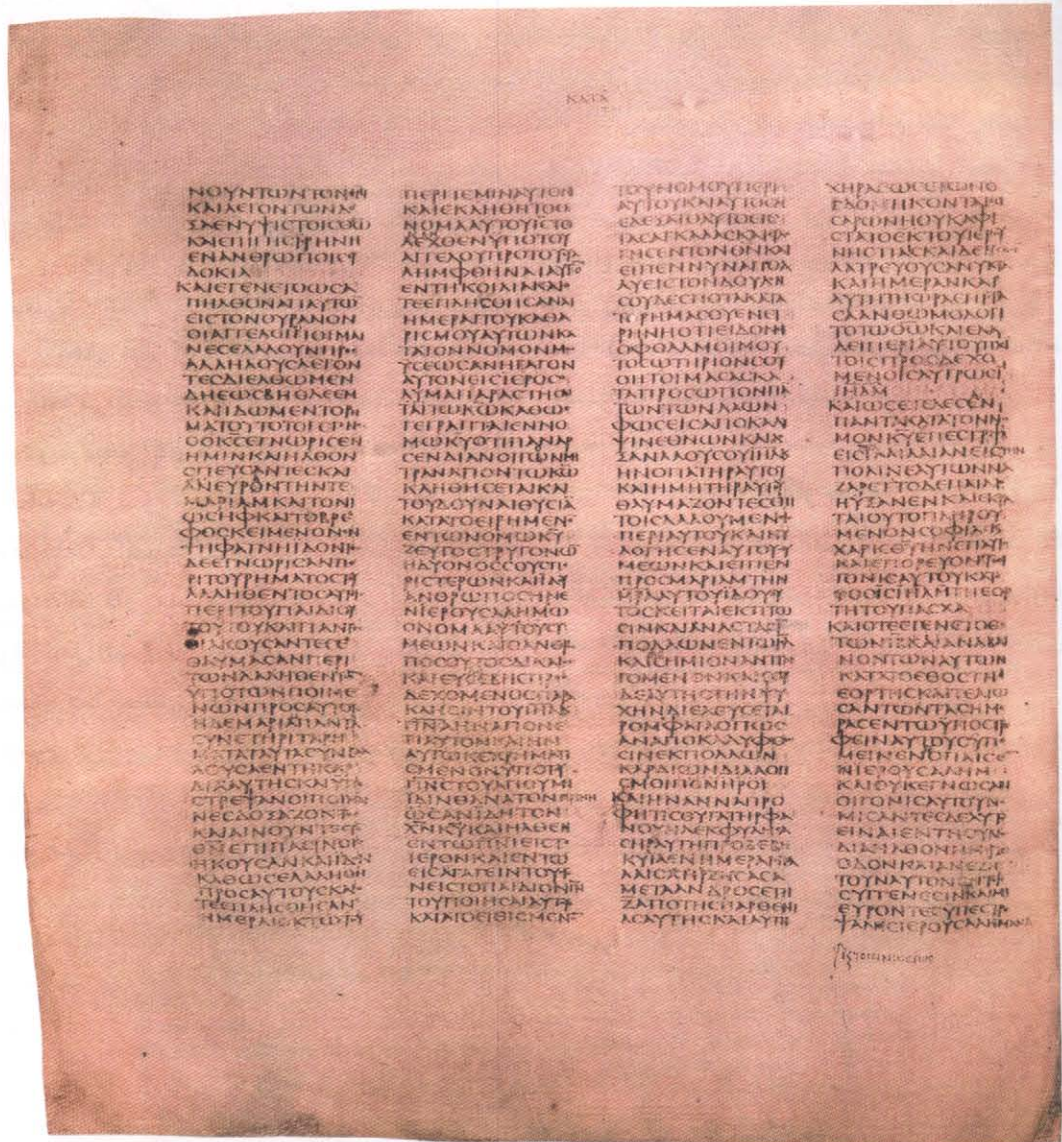 ΚΑΤΑ
ΝΟΥΝΤΩΝΤΟΝΘΝ
ΚΑΙΛΕΓΟΝΤΩΝΔΟ
ΞΑΕΝΥΨΙCΤΟΙCΘΩ
ΚΑΙΕΠΙΓΗCΕΙΡΗΝΗ
ΕΝΑΝΘΡΩΠΟΙCΕΥ
ΔΟΚΙΑC
ΚΑΙΕΓΕΝΕΤΟΩCΑ
ΠΗΛΘΟΝΑΠΑΥΤΩ
ΕΙCΤΟΝΟΥΡΑΝΟΝ
ΟΙΑΓΓΕΛΟΙΟΙΠΟΙΜΕ
ΝΕCΕΛΑΛΟΥΝΠΡΟC
ΑΛΛΗΛΟΥCΛΕΓΟΝ
ΤΕCΔΙΕΛΘΩΜΕΝ
ΔΗΕΩCΒΗΘΛΕΕΜ
ΚΑΙΙΔΩΜΕΝΤΟΡΗ
ΜΑΤΟΥΤΟΤΟΓΕΓΟΝ
ΟΟΚCΕΓΝΩΡΙCΕΝ
ΗΜΙΝΚΑΙΗΛΘΟΝ
CΠΕΥCΑΝΤΕCΚΑΙ
ΑΝΕΥΡΟΝΤΗΝΤΕ
ΜΑΡΙΑΜΚΑΙΤΟΝΙ
ΩCΗΦΚΑΙΤΟΒΡΕ
ΦΟCΚΕΙΜΕΝΟΝΕΝ
ΤΗΦΑΤΝΗΙΔΟΝΤΕC
ΔΕΕΓΝΩΡΙCΑΝΠΕ
ΡΙΤΟΥΡΗΜΑΤΟCΤΟΥ
ΛΑΛΗΘΕΝΤΟCΑΥΤΟΙC
ΠΕΡΙΤΟΥΠΑΙΔΙΟΥ
ΤΟΥΤΟΥΚΑΙΠΑΝΤΕC
ΟΙΑΚΟΥCΑΝΤΕCΕ
ΘΑΥΜΑCΑΝΠΕΡΙ
ΤΩΝΛΑΛΗΘΕΝΤΩΝ
ΥΠΟΤΩΝΠΟΙΜΕ
ΝΩΝΠΡΟCΑΥΤΟΥC
ΗΔΕΜΑΡΙΑΠΑΝΤΑ
CΥΝΕΤΗΡΙΤΑΡΗ
ΜΑΤΑΤΑΥΤΑCΥΝΒΑΛ
ΛΟΥCΑΕΝΤΗΚΑΡ
ΔΙΑΑΥΤΗCΚΑΙΥΠΕ
CΤΡΕΨΑΝΟΙΠΟΙΜΕ
ΝΕCΔΟΞΑΖΟΝΤΕC
ΚΑΙΑΙΝΟΥΝΤΕCΤΟΝ
ΘΝΕΠΙΠΑCΙΝΟΙC
ΗΚΟΥCΑΝΚΑΙΙΔΟΝ
ΚΑΘΩCΕΛΑΛΗΘΗ
ΠΡΟCΑΥΤΟΥCΚΑΙΟ
ΤΕΕΠΛΗCΘΗCΑΝ
ΗΜΕΡΑΙΟΚΤΩΤΟΥ
ΠΕΡΙΤΕΜΙΝΑΥΤΟΝ
ΚΑΙΕΚΛΗΘΗΤΟΟ
ΝΟΜΑΑΥΤΟΥΙCΤΟ
ΛΕΧΘΕΝΥΠΟΤΟΥ
ΑΓΓΕΛΟΥΠΡΟΤΟΥCΥΛ
ΛΗΜΦΘΗΝΑΙΑΥΤΟ
ΕΝΤΗΚΟΙΛΙΑΚΑΙΟ
ΤΕΕΠΛΗCΘΗCΑΝΑΙ
ΗΜΕΡΑΙΤΟΥΚΑΘΑ
ΡΙCΜΟΥΑΥΤΩΝΚΑ
ΤΑΤΟΝΝΟΜΟΝΜΩ
ΥCΕΩCΑΝΗΓΑΓΟΝ
ΑΥΤΟΝΕΙCΙΕΡΟCΟ
ΛΥΜΑΠΑΡΑCΤΗCΑΙ
ΤΩΚΩΚΑΘΩC
ΓΕΓΡΑΠΤΑΙΕΝΝΟ
ΜΩΚΥΟΤΙΠΑΝΑΡ
CΕΝΔΙΑΝΟΙΓΟΝΜΗ
ΤΡΑΝΑΓΙΟΝΤΩΚΩ
ΚΛΗΘΗCΕΤΑΙΚΑΙ
ΤΟΥΔΟΥΝΑΙΘΥCΙΑ
ΚΑΤΑΤΟΕΙΡΗΜΕΝΟΝ
ΕΝΤΩΝΟΜΩΚΥ
ΖΕΥΓΟCΤΡΥΓΟΝΩ
ΗΔΥΟΝΟCCΟΥCΠΕ
ΡΙCΤΕΡΩΝΚΑΙΙΔΟΥ
ΑΝΘΡΩΠΟCΗΝΕ
ΝΙΕΡΟΥCΑΛΗΜΩ
ΟΝΟΜΑΑΥΤΟΥCΥ
ΜΕΩΝΚΑΙΟΑΝΘΡΩ
ΠΟCΟΥΤΟCΔΙΚΑΙΟC
ΚΑΙΕΥCΕΒΗCΠΡΟC
ΔΕΧΟΜΕΝΟCΠΑΡΑ
ΚΛΗCΙΝΤΟΥΙΗΛΚΑΙ
ΠΝΑΗΝΑΓΙΟΝΕ
ΠΑΥΤΟΝΚΑΙΗΝ
ΑΥΤΩΚΕΧΡΗΜΑΤΙ
CΜΕΝΟΝΥΠΟΤΟΥ
ΠΝCΤΟΥΑΓΙΟΥΜΗ
ΙΔΙΝΘΑΝΑΤΟΝΠΡΙΝΗ
ΩCΑΝΙΔΗΤΟΝ
ΧΝΚΥΚΑΙΗΛΘΕΝ
ΕΝΤΩΠΝΙΕΙCΤΟ
ΙΕΡΟΝΚΑΙΕΝΤΩ
ΕΙCΑΓΑΓΕΙΝΤΟΥCΓΟ
ΝΕΙCΤΟΠΑΙΔΙΟΝΙΝ
ΤΟΥΠΟΙΗCΑΙΑΥΤΟΥC
ΚΑΤΑΤΟΕΙΘΙCΜΕΝΟΝ
ΤΟΥΝΟΜΟΥΠΕΡΙ
ΑΥΤΟΥΚΑΙΑΥΤΟC
ΕΔΕΞΑΤΟΑΥΤΟΕΙC
ΤΑCΑΓΚΑΛΑCΚΑΙΕΥΛΟ
ΓΗCΕΝΤΟΝΘΝΚΑΙ
ΕΙΠΕΝΝΥΝΑΠΟΛ
ΥΕΙCΤΟΝΔΟΥΛΟΝ
CΟΥΔΕCΠΟΤΑΚΑΤΑ
ΤΟΡΗΜΑCΟΥΕΝΕΙ
ΡΗΝΗΟΤΙΕΙΔΟΝΟΙ
ΟΦΘΑΛΜΟΙΜΟΥ
ΤΟCΩΤΗΡΙΟΝCΟΥ
ΟΗΤΟΙΜΑCΑCΚΑ
ΤΑΠΡΟCΩΠΟΝΠΑ
ΤΩΝΤΩΝΛΑΩΝ
ΦΩCΕΙCΑΠΟΚΑΛΥ
ΨΙΝΕΘΝΩΝΚΑΙΔΟ
ΞΑΝΛΑΟΥCΟΥΙΗΛΚΑΙ
ΗΝΟΠΑΤΗΡΑΥΤΟΥ
ΚΑΙΗΜΗΤΗΡΑΥΤΟΥ
ΘΑΥΜΑΖΟΝΤΕCΕΠΙ
ΤΟΙCΛΑΛΟΥΜΕΝΟΙC
ΠΕΡΙΑΥΤΟΥΚΑΙΕΥ
ΛΟΓΗCΕΝΑΥΤΟΥCCΥ
ΜΕΩΝΚΑΙΕΙΠΕΝ
ΠΡΟCΜΑΡΙΑΜΤΗΝ
ΜΡΑΑΥΤΟΥΙΔΟΥΟΥ
ΤΟCΚΕΙΤΑΙΕΙCΠΤΩ
CΙΝΚΑΙΑΝΑCΤΑCΙΝ
ΠΟΛΛΩΝΕΝΤΩΙΗΛ
ΚΑΙCΗΜΙΟΝΑΝΤΙΛΕ
ΓΟΜΕΝΟΝΚΑΙCΟΥ
ΔΕΑΥΤΗCΤΗΝΨΥ
ΧΗΝΔΙΕΛΕΥCΕΤΑΙ
ΡΟΜΦΑΙΑΟΠΩC
ΑΝΑΠΟΚΑΛΥΦΘΩ
CΙΝΕΚΠΟΛΛΩΝ
ΚΑΡΔΙΩΝΔΙΑΛΟΓΙ
CΜΟΙΠΟΝΗΡΟΙ
ΚΑΙΗΝΑΝΝΑΠΡΟ
ΦΗΤΙCΘΥΓΑΤΗΡΦΑ
ΝΟΥΗΛΕΚΦΥΛΗCΑ
CΗΡΑΥΤΗΠΡΟΒΕΒΗ
ΚΥΙΑΕΝΗΜΕΡΑΙC
ΠΟΛΛΑΙCΖΗCΑCΑ
ΜΕΤΑΑΝΔΡΟCΕΤΗ
ΖΑΠΟΤΗCΠΑΡΘΕΝΙ
ΑCΑΥΤΗCΚΑΙΑΥΤΗ
ΧΗΡΑΩCΕΤΩΝΟ
ΓΔΟΗΚΟΝΤΑΤΕC
CΑΡΩΝΗΟΥΚΑΦΙ
CΤΑΤΟΕΚΤΟΥΙΕΡΟΥ
ΝΗCΤΙΑΙCΚΑΙΔΕΗCΕCΙΝ
ΛΑΤΡΕΥΟΥCΑΝΥΚΤΑ
ΚΑΙΗΜΕΡΑΝΚΑΙ
ΑΥΤΗΤΗΩΡΑΕΠΙCΤΑ
CΑΑΝΘΩΜΟΛΟΓΙ
ΤΟΤΩΘΩΚΑΙΕΛΑ
ΛΕΙΠΕΡΙΑΥΤΟΥΠΑCΙ
ΤΟΙCΠΡΟCΔΕΧΟ
ΜΕΝΟΙCΛΥΤΡΩCΙΝ
ΙΗΛΜ
ΚΑΙΩCΕΤΕΛΕCΑΝ
ΠΑΝΤΑΚΑΤΑΤΟΝΝΟ
ΜΟΝΚΥΕΠΕCΤΡΕΨΑΝ
ΕΙCΤΗΝΓΑΛΙΛΑΙΑΝΕΙCΤΗΝ
ΠΟΛΙΝΕΑΥΤΩΝΝΑ
ΖΑΡΕΤΤΟΔΕΠΑΙΔΙΟΝ
ΗΥΞΑΝΕΝΚΑΙΕΚΡΑ
ΤΑΙΟΥΤΟΠΛΗΡΟΥ
ΜΕΝΟΝCΟΦΙΑΚΑΙ
ΧΑΡΙCΘΥΗΝΕΠΑΥΤΟ
ΚΑΙΕΠΟΡΕΥΟΝΤΟΟΙ
ΓΟΝΙCΑΥΤΟΥΚΑΤΕ
ΤΟCΕΙCΙΗΛΜΤΗΕΟΡ
ΤΗΤΟΥΠΑCΧΑ
ΚΑΙΟΤΕΕΓΕΝΕΤΟΕ
ΤΩΝΙΒΚΑΙΑΝΑΒΑΙ
ΝΟΝΤΩΝΑΥΤΩΝ
ΚΑΤΑΤΟΕΘΟCΤΗC
ΕΟΡΤΗCΚΑΙΤΕΛΙΩ
CΑΝΤΩΝΤΑCΗΜΕ
ΡΑCΕΝΤΩΥΠΟCΤΡΕ
ΦΕΙΝΑΥΤΟΥCΥΠΕ
ΜΕΙΝΕΝΟΠΑΙCΕ
ΝΙΕΡΟΥCΑΛΗΜ
ΚΑΙΟΥΚΕΓΝΩCΑΝ
ΟΙΓΟΝΙCΑΥΤΟΥΝΟ
ΜΙCΑΝΤΕCΔΕΑΥΤΟΝ
ΕΙΝΑΙΕΝΤΗCΥΝΟ
ΔΙΑΗΛΘΟΝΗΜΕΡΑC
ΟΔΟΝΚΑΙΑΝΕΖΗ
ΤΟΥΝΑΥΤΟΝΕΝΤΟΙC
CΥΓΓΕΝΕCΙΝΚΑΙΜΗ
ΕΥΡΟΝΤΕCΥΠΕCΤΡΕ
ΨΑΝΕΙCΙΕΡΟΥCΑΛΗΜΑΝΑ